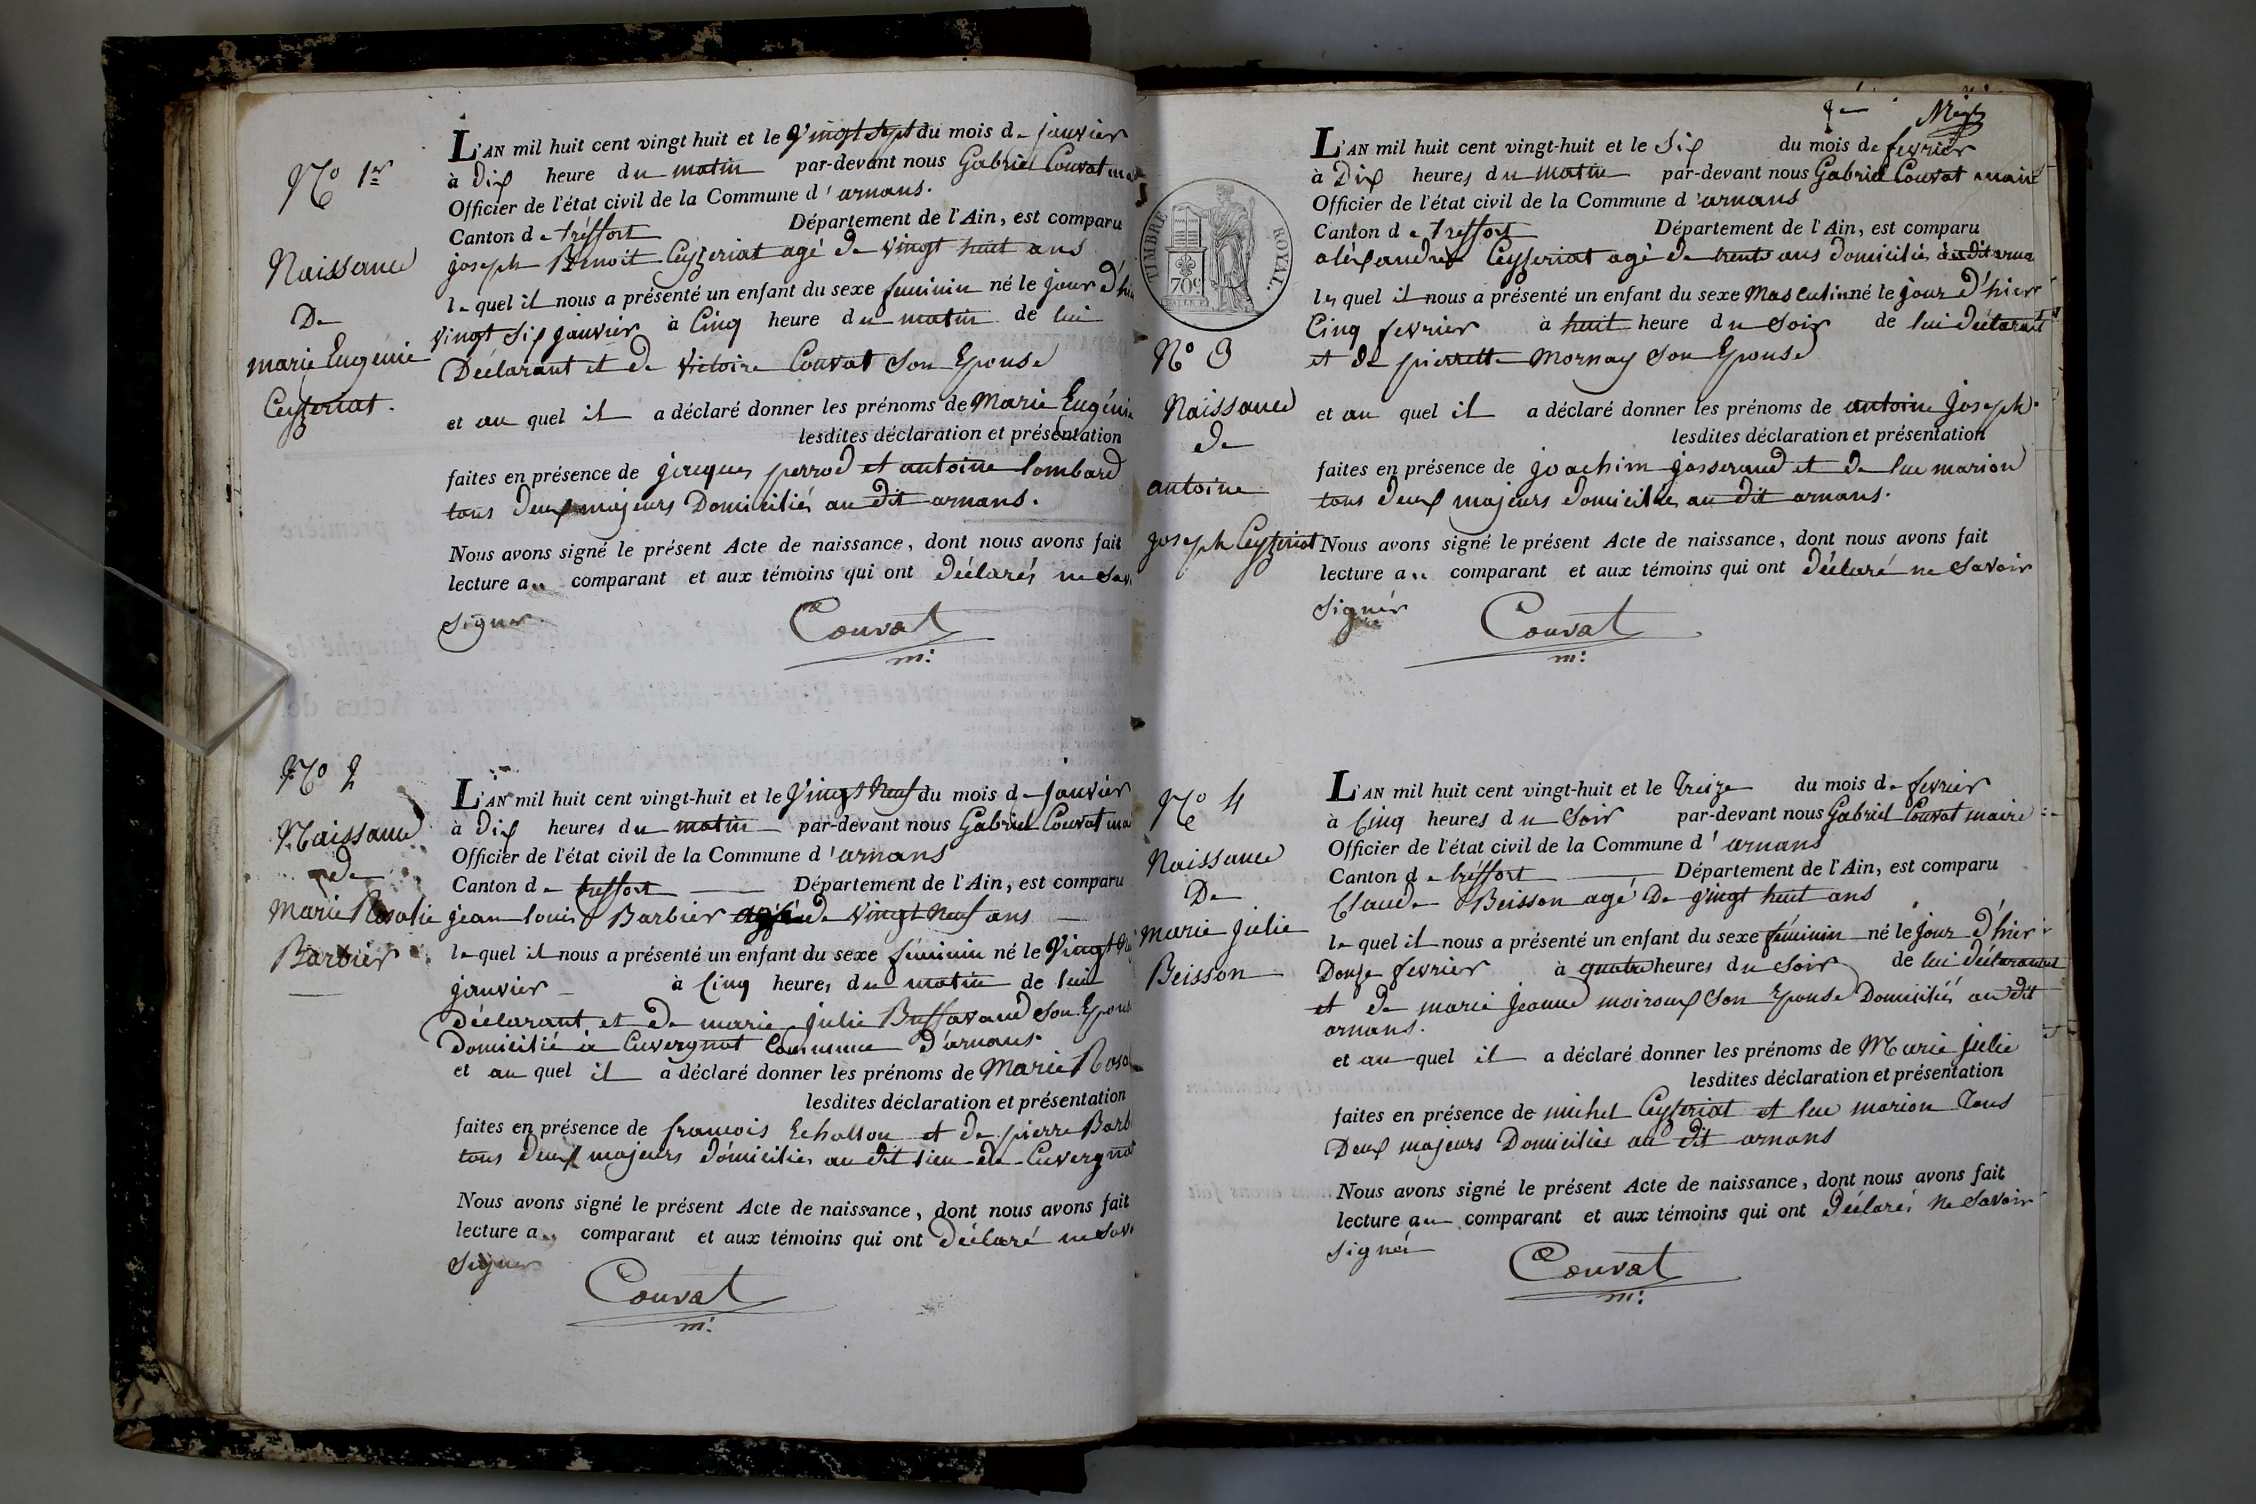 N.º 1.er
Naissance
De
marie Eugénie
Ceyzeriat.
L'AN mil huit cent vingt huit et le Vingt sept du mois de janvier
à Dix heure du matin par-devant nous Gabriel Couvat
Officier de l'état civil de la Commune d'arnans.
Canton de tréffort Département de l'Ain, est comparu
joseph Benoit Ceyzeriat agé de vingt huit ans
le quel il nous a présenté un enfant du sexe feminin né le jour
vingt six janvier à Cinq heure du matin de lui
Déclarant et de Victoire Couvat Son Epouse
et au quel il a déclaré donner les prénoms de Marie Eugénie
lesdites déclaration et présentation
faites en présence de jacques perrod et antoine lombard
tous deux majeurs Domiciliés au dit arnans.
Nous avons signé le présent Acte de naissance, dont nous avons fait
lecture au comparant et aux témoins qui ont déclarés ne
Signer
Couvat
m:
N.º 2
Naissance
de
Marie Rosalie
Barbier
L'AN mil huit cent vingt-huit et le Vingt Neuf du mois de janvier
à dix heures du matin par-devant nous Gabriel Couvat
Officier de l'état civil de la Commune d'arnans
Canton de treffort Département de l'Ain, est comparu
jean louis Barbier agé de Vingt Neuf ans
le quel il nous a présenté un enfant du sexe féminin né le Vingt
janvier à Cinq heures du matin de lui
déclarant et de marie julie Buffavand Son
Domicilié à Cuvergnat Commune d'arnans.
et au quel il a déclaré donner les prénoms de Marie
lesdites déclaration et présentation
faites en présence de francois Echallon et de pierre
tous deux majeurs domiciliés au dit lieu de
Nous avons signé le présent Acte de naissance, dont nous avons fait
lecture au comparant et aux témoins qui ont déclaré ne
Signer
Couvat
m:
TIMBRE ROYAL.
70c
N.º 3
Naissance
de
antoine
joseph Ceyzeriat
L'AN mil huit cent vingt-huit et le Six du mois de fevrier
à Dix heures du matin par-devant nous Gabriel Couvat
Officier de l'état civil de la Commune d'arnans
Canton de treffort Département de l'Ain, est comparu
aléxandre Ceyzeriat agé de trente ans domicilié
le quel il nous a présenté un enfant du sexe Masculin né le jour d'hier
Cinq fevrier à huit heure du Soir de lui déclarant
et de pierrette Mornay Son Epouse
et au quel il a déclaré donner les prénoms de antoine joseph.
lesdites déclaration et présentation
faites en présence de joachim josserand et de luc marion
tous deux majeurs domiciliés au dit arnans.
Nous avons signé le présent Acte de naissance, dont nous avons fait
lecture au comparant et aux témoins qui ont déclaré ne Savoir
Signér
Couvat
m:
N.º 4
Naissance
De
Marie julie
Beisson
L'AN mil huit cent vingt-huit et le Treize du mois de fevrier
à Cinq heures du Soir par-devant nous Gabriel Couvat maire
Officier de l'état civil de la Commune d'arnans
Canton de tréffort Département de l'Ain, est comparu
Claude Beisson agé De vingt huit ans
le quel il nous a présenté un enfant du sexe féminin né le jour d'hier
Douze fevrier à quatre heures du Soir de lui déclarant
et de marie jeanne moiroux Son Epouse Domiciliés au dit
arnans.
et au quel il a déclaré donner les prénoms de Marie julie
lesdites déclaration et présentation
faites en présence de michel Ceyzeriat et luc marion Tous
Deux majeurs Domiciliés au dit arnans
Nous avons signé le présent Acte de naissance, dont nous avons fait
lecture au comparant et aux témoins qui ont déclarés Ne Savoir
Signér
Couvat
m: